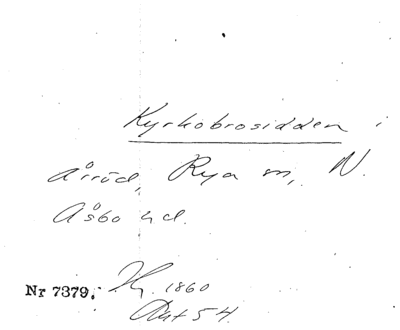 Kyrkobrosidden i
Årröd, Rya sn, N.
Åsbo hd.
Nr 7379. Hy. 1860
Akt 54